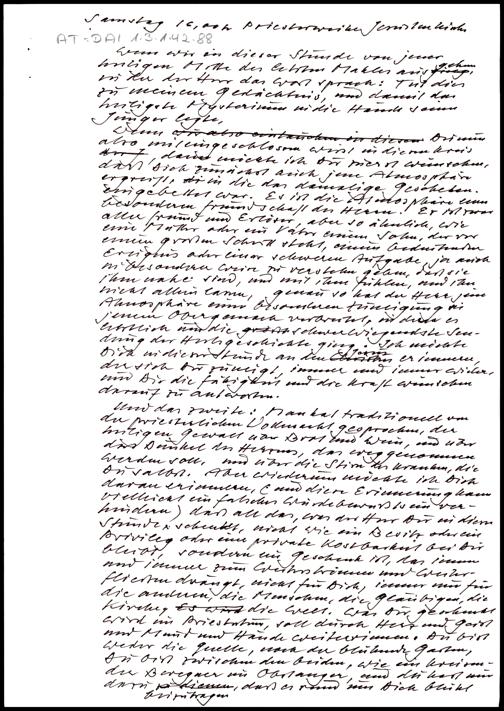 Samstag 16,00h Priesterweihe Jesuitenkirche
AT-DAI 1.3.1.42.88
Wenn wir in dieser Stunde von jener
heiligen Mitte des letzten Mahles ausgehen,
in der der Herr das Wort sprach: Tut dies
zu meinem Gedächtnis, und damit das
heiligste Mysterium in die Hände seiner
Jünger legte,
Wenn Du nun
also miteingeschlossen wirst in diesen Kreis
dann möchte ich Dir zuerst wünschen,
daß Dich zunächst auch jene Atmosphäre
ergreift, in die das damalige Geschehen
eingebettet war. Es ist die Atmosphäre einer
besonderen Freundschaft des Herrn. Er ist zwar
aller Freund und Erlöser, aber so ähnlich, wie
eine Mutter oder ein Vater einem Sohn, der vor
einem großen Schritt steht, einem bedeutenden
Ereignis oder einer schweren Aufgabe, ja auch
in besonderer Weise zu verstehen geben, daß sie
ihm nahe sind, und mit ihm fühlen, und ihn
nicht allein lassen, genau so hat der Herr jene
Atmosphäre einer besonderen Zuneigung in
jenem Obergemach verbreitet, in dem es
letztlich um die schwerwiegendste Sen-
dung der Heilsgeschichte ging. Ich möchte
Dich in dieser Stunde an den Herrn erinnern,
der sich Dir zuneigt, immer und immer wieder,
und Dir die Fähigkeit und die Kraft wünschen
darauf zu antworten.
Und das zweite: Man hat traditionell von
der priesterlichen Vollmacht gesprochen, der
heiligen Gewalt über Brot und Wein, und über
das Dunkel des Herzens, das weggenommen
werden soll, und über die Stirn des Kranken, die
Du salbst. Aber wiederum möchte ich Dich
daran erinnern, (und diese Erinnerung kann
vielleicht ein falsches Würdebewußtsein ver-
hindern) daß all das, was der Herr Dir in dieser
Stunde schenkt, nicht wie ein Besitz oder ein
Privileg oder eine private Kostbarkeit bei Dir
bleibt, sondern ein Geschenk ist, das immer
und immer zum Weiterströmen und Weiter-
fließen drängt, nicht für Dich, immer nur für
die anderen, die Menschen, die Gläubigen, die
Kirche, die Welt. Was Dir geschenkt
wird im Priestertum, soll durch Herz und Geist
und Mund und Hände weiterrinnen. Du bist
weder die Quelle, noch der blühende Garten,
Du bist zwischen den beiden, wie ein
der Beregner im Obstanger, und du hast nur
dazu beizutragen, daß es rund um Dich blüht